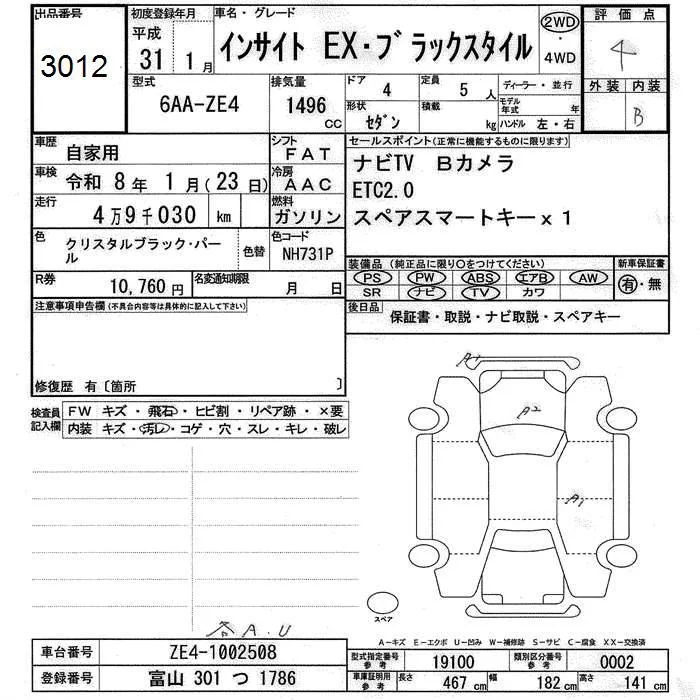 出品番号
3012
初度登録年月
平成
31 1月
車名・グレード
インサイト EX・ブラックスタイル
2WD
・
4WD
評価点
4
外装 内装
B
型式
6AA-ZE4
排気量
1496
CC
ドア
4
定員
5 人
ディーラー・並行
形状
セダン
積載
kg
モデル年式 年
ハンドル 左・右
車歴
自家用
シフト
FAT
車検
令和 8年 1月(23日)
冷房
AAC
走行
4万9千030 km
燃料
ガソリン
色
クリスタルブラック・パール
色替
色コード
NH731P
R券
10,760円
名変通知期限
月 日
セールスポイント(正常に機能するものに限ります)
ナビTV Bカメラ
ETC2.0
スペアスマートキーx1
装備品 (純正品に限り○をつけてください)
PS PW ABS エアB AW
SR ナビ TV カワ
新車保証書
有・無
後日品
保証書・取説・ナビ取説・スペアキー
注意事項申告欄(不具合内容等は具体的に記入して下さい)
修復歴 有〔箇所 〕
検査員記入欄
FW キズ・飛石・ヒビ割・リペア跡・×要
内装 キズ・汚レ・コゲ・穴・スレ・キレ・破レ
A1
A2
A1
スペア
各A.U
A-キズ E-エクボ U-凹み W-補修跡 S-サビ C-腐食 XX-交換済
車台番号
ZE4-1002508
登録番号
富山 301 つ 1786
型式指定番号
参考
19100
類別区分番号
参考
0002
車庫証明用
参考
長さ
467 cm
幅
182 cm
高さ
141 cm